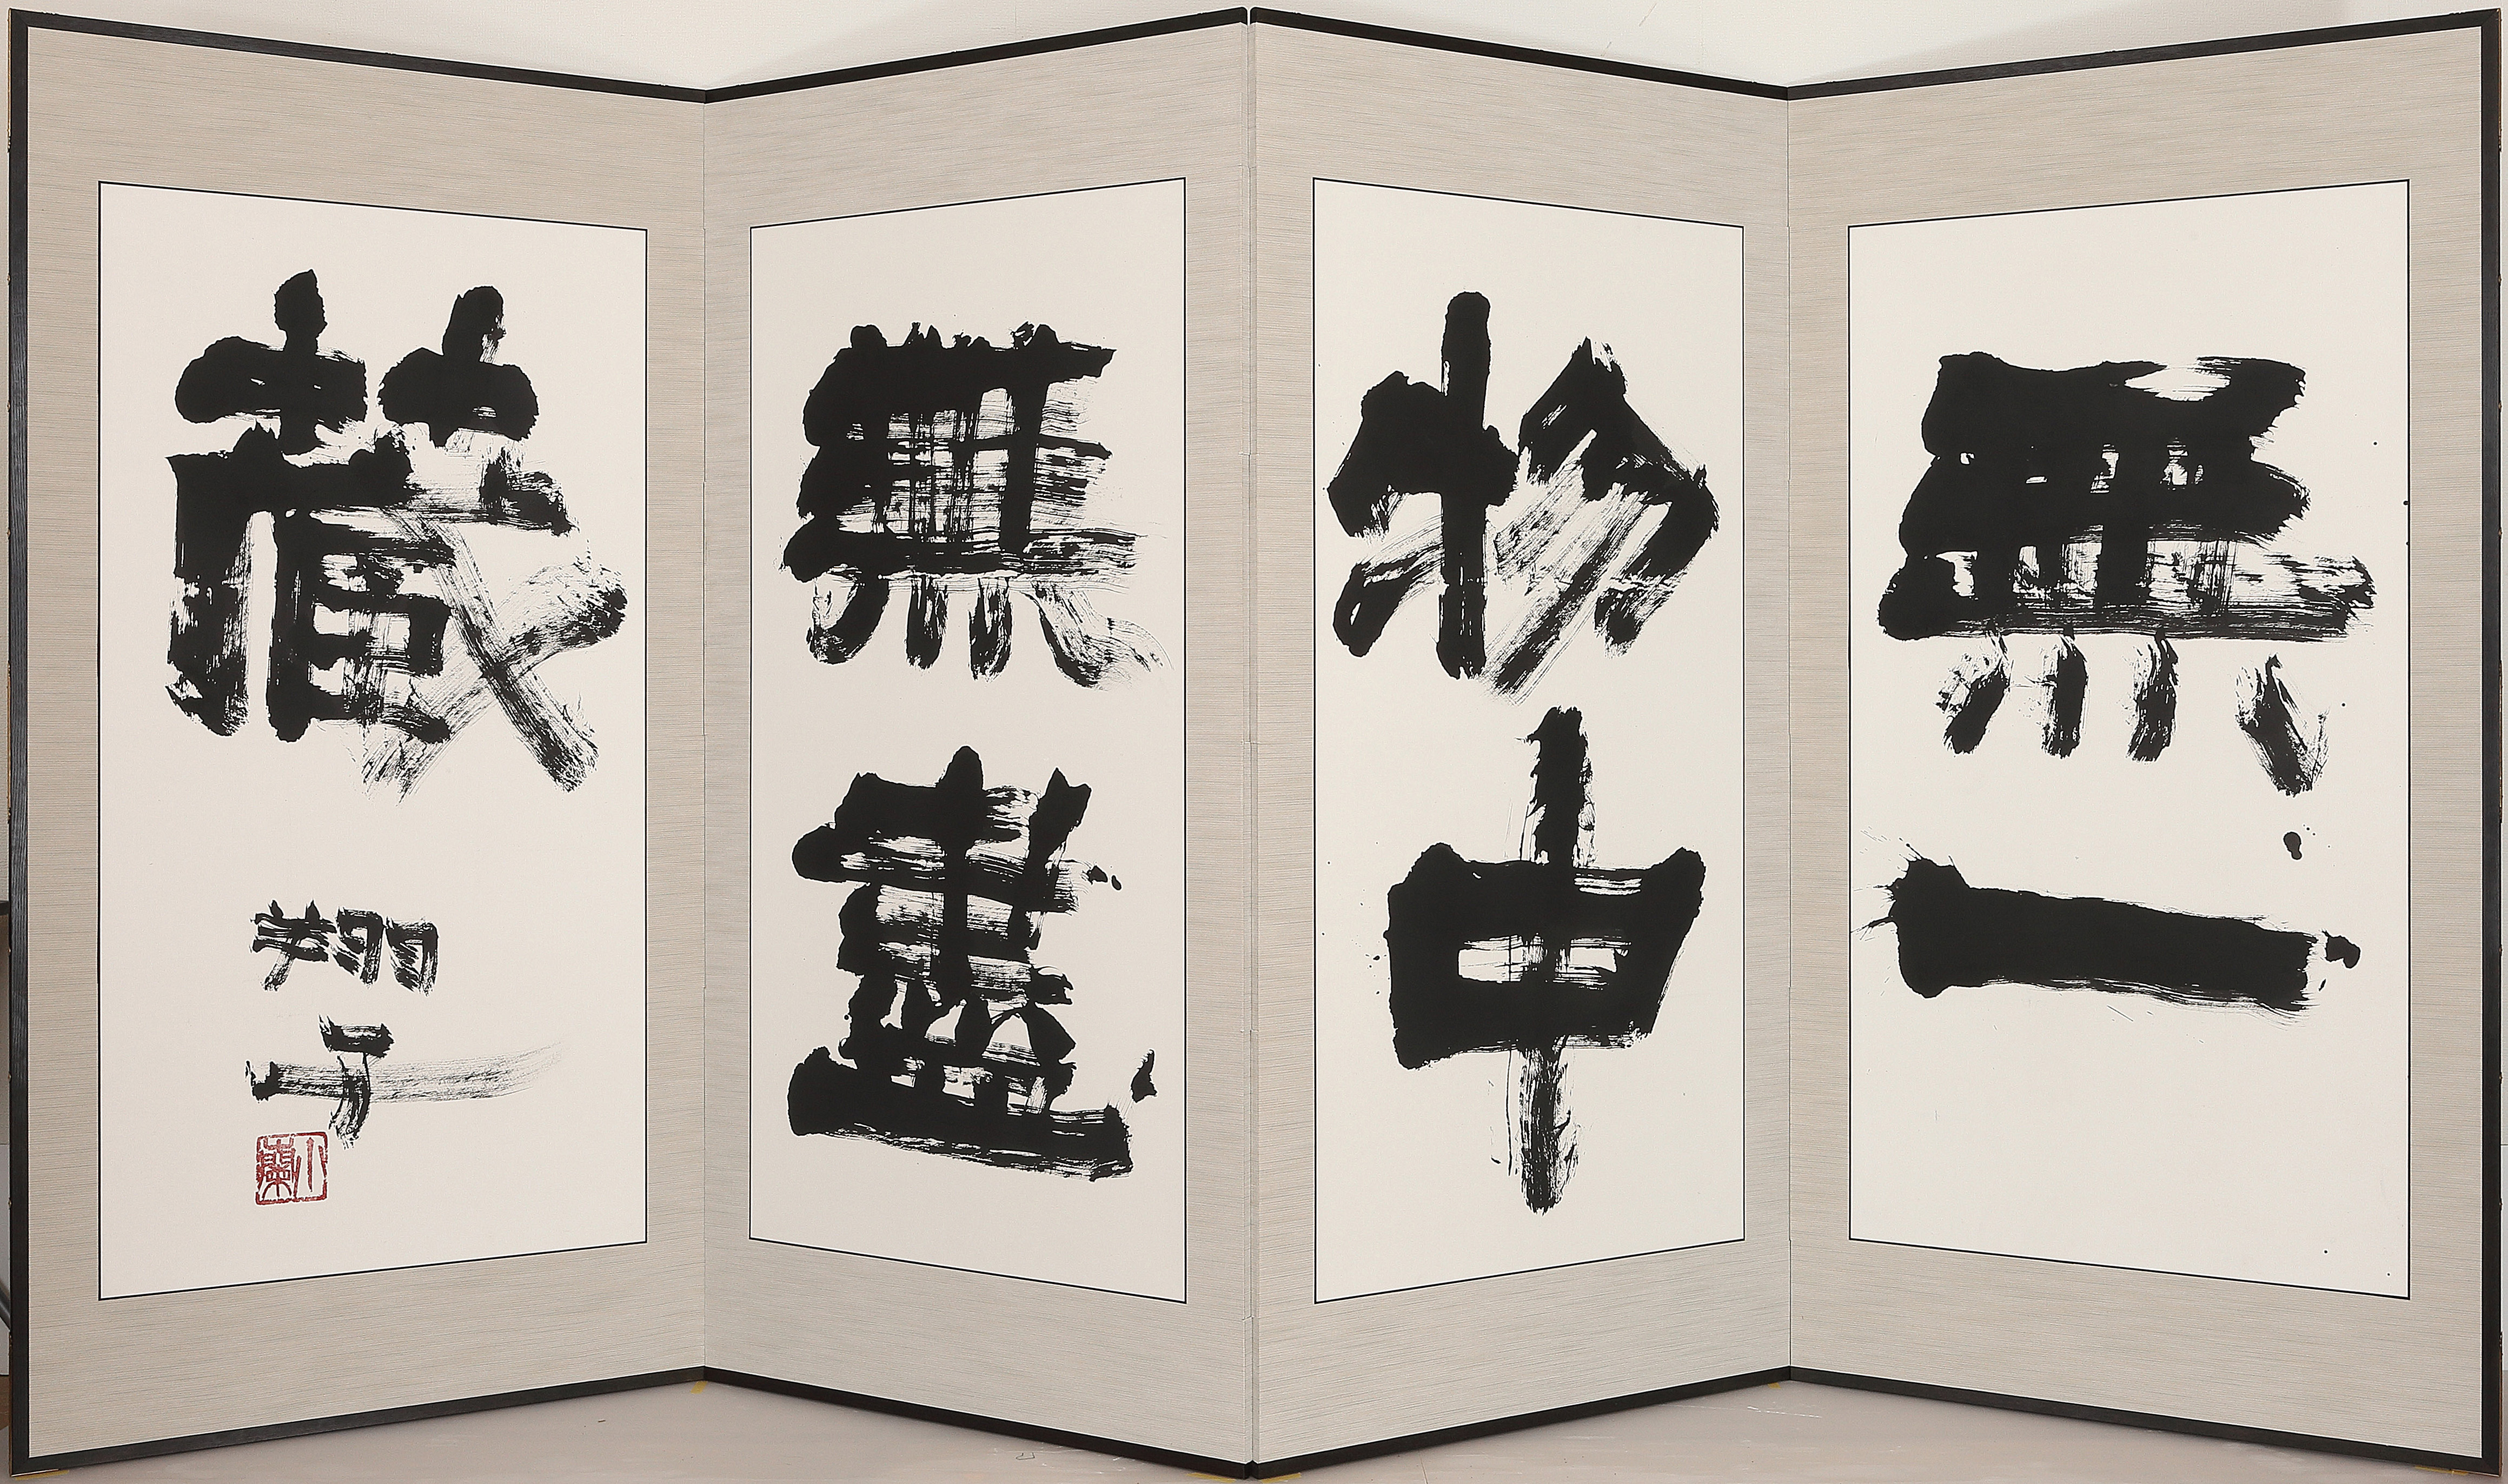 無一
物中
無盡
藏
翔子
小蘭